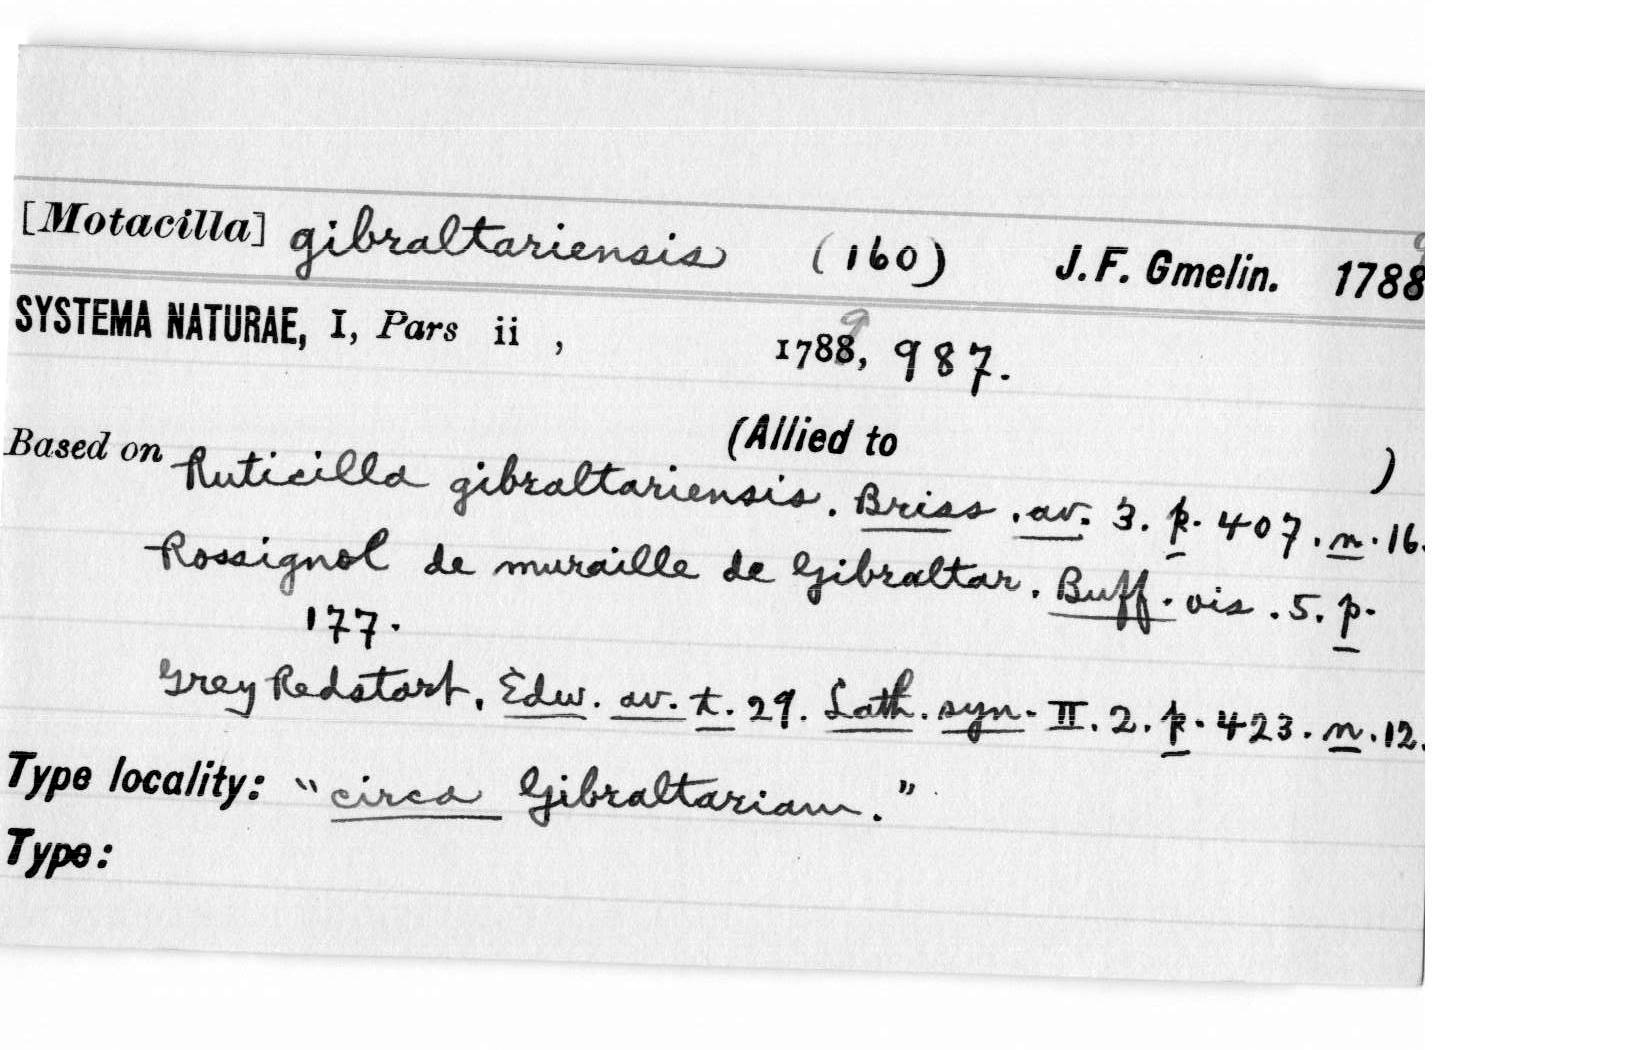 [Motacilla] gibraltariensis (160) J. F. Gmelin. 1788 9
SYSTEMA NATURAE, I, Pars ii , 1788, 9 987.
(Allied to )
Based on Ruticilla gibraltariensis. Briss. av. 3. p. 407. n. 16.
Rossignol de muraille de Gibraltar. Buff. ois. 5. p.
177.
Grey Redstart. Edw. av. t. 29. Lath. syn. II. 2. p. 423. n. 12.
Type locality: "circa Gibraltariam."
Type: